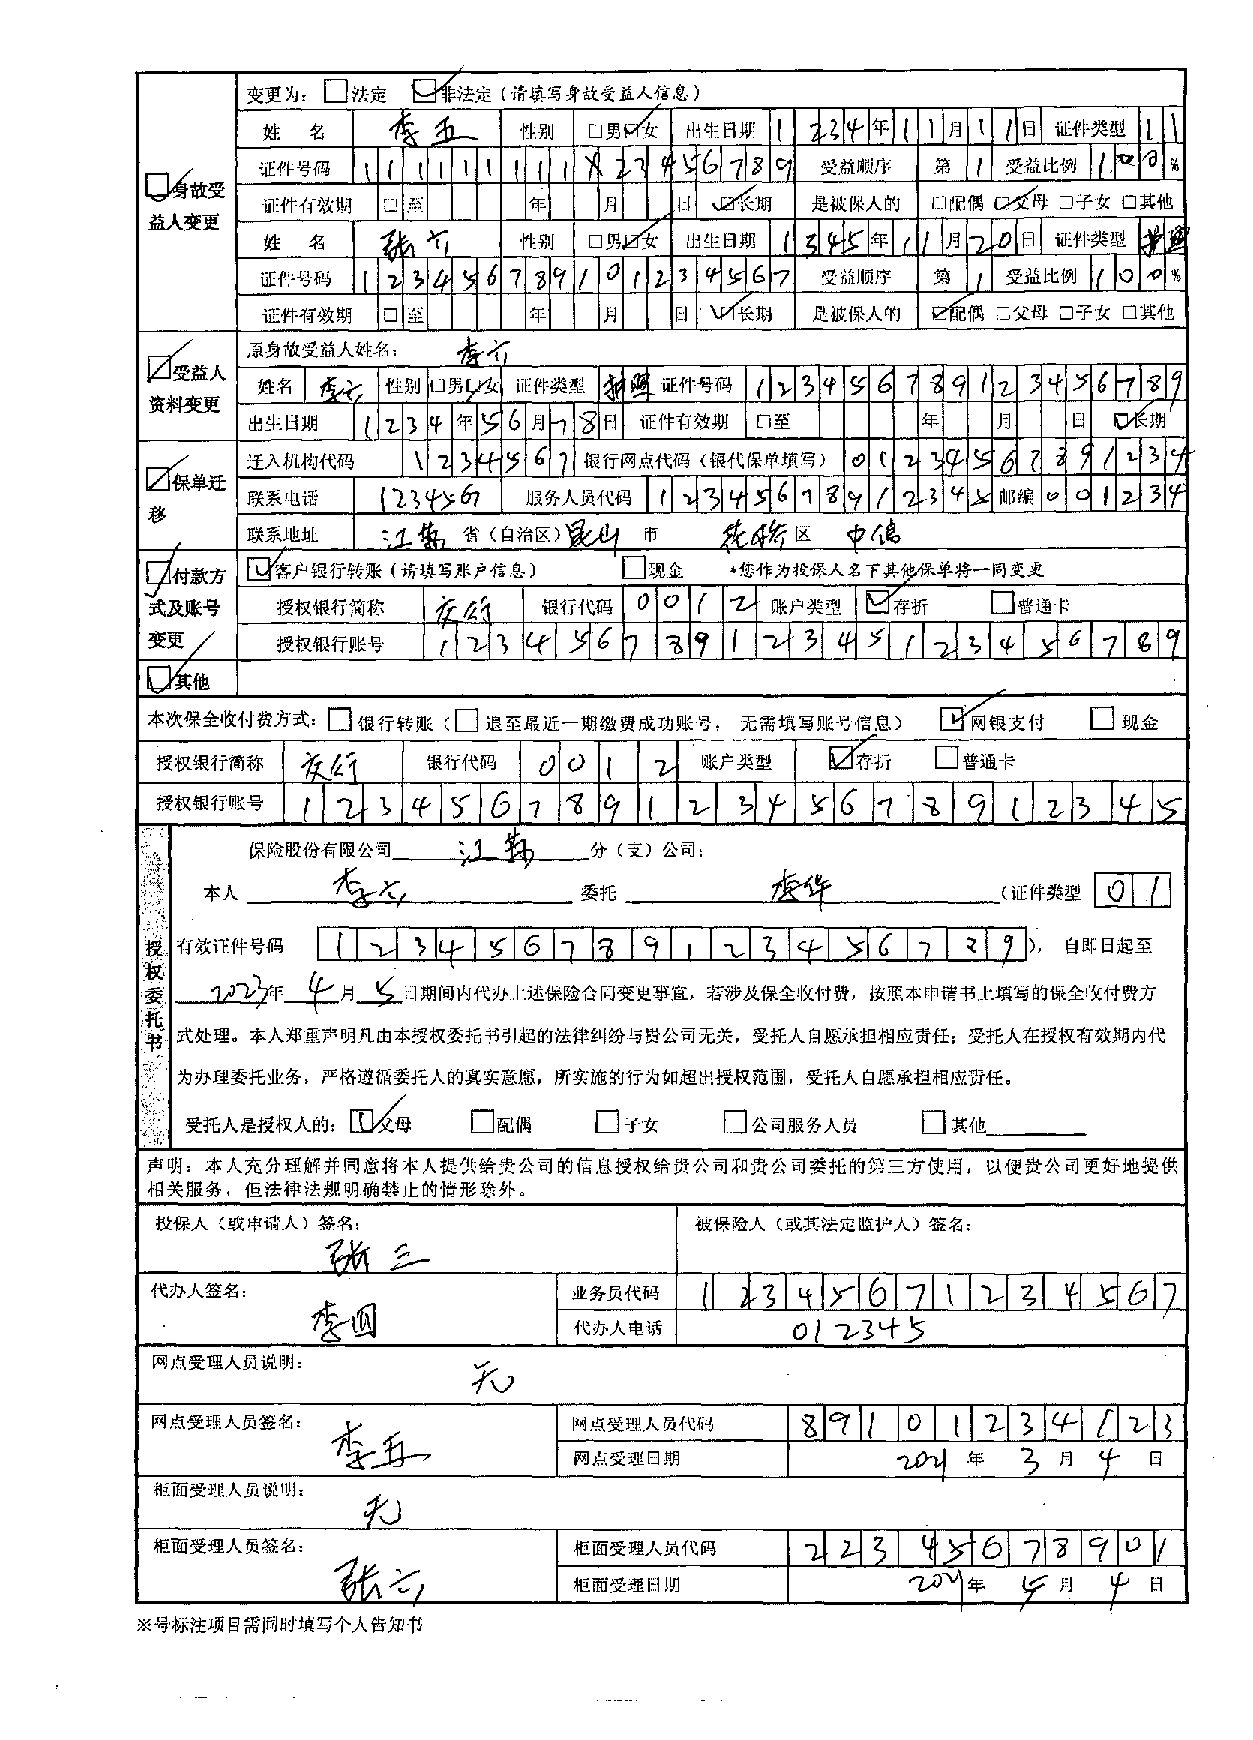 变更为：□法定 ☑非法定（请填写身故受益人信息）
姓 名 李五 性别 □男☑女 出生日期 1234年11月11日 证件类型 11
☑身故受益人变更
证件号码 111111111X23456789 受益顺序 第1 受益比例 100%
证件有效期 □至 年 月 日 ☑长期 是被保人的 □配偶 ☑父母 □子女 □其他
姓 名 张六 性别 □男☑女 出生日期 1345年11月20日 证件类型 护照
证件号码 123456789101234567 受益顺序 第1 受益比例 100%
证件有效期 □至 年 月 日 ☑长期 是被保人的 ☑配偶 □父母 □子女 □其他
☑受益人资料变更
原身故受益人姓名： 李六
姓名 李六 性别 □男☑女 证件类型 护照 证件号码 123456789123456789
出生日期 1234年56月78日 证件有效期 □至 年 月 日 ☑长期
☑保单迁移
迁入机构代码 1234567 银行网点代码（银代保单填写）01234567891234
联系电话 1234567 服务人员代码 12345678912345 邮编 001234
联系地址 江苏 省（自治区）昆山 市 花桥 区
☑付款方式及账号变更
☑客户银行转账（请填写账户信息） □现金 *您作为投保人名下其他保单将一同变更
授权银行简称 农行 银行代码 0012 账户类型 ☑存折 □普通卡
授权银行账号 12345678912345123456789
☑其他
本次保全收付费方式：□银行转账（□退至最近一期缴费成功账号，无需填写账号信息） ☑网银支付 □现金
授权银行简称 农行 银行代码 0012 账户类型 ☑存折 □普通卡
授权银行账号 12345678912345678912345
授权委托书
保险股份有限公司 江苏 分（支）公司：
本人 李六 委托 （证件类型 01
有效证件号码 123456789123456789），自即日起至
2023年4月5日期间内代办上述保险合同变更事宜，若涉及保全收付费，按照本申请书上填写的保全收付费方
式处理。本人郑重声明凡由本授权委托书引起的法律纠纷与贵公司无关，受托人自愿承担相应责任；受托人在授权有效期内代
为办理委托业务，严格遵循委托人的真实意愿，所实施的行为如超出授权范围，受托人自愿承担相应责任。
受托人是授权人的：☑父母 □配偶 □子女 □公司服务人员 □其他
声明：本人充分理解并同意将本人提供给贵公司的信息授权给贵公司和贵公司委托的第三方使用，以便贵公司更好地提供
相关服务，但法律法规明确禁止的情形除外。
投保人（或申请人）签名： 张三 被保险人（或其法定监护人）签名：
代办人签名： 李四 业务员代码 12345671234567
代办人电话 012345
网点受理人员说明： 无
网点受理人员签名： 李五 网点受理人员代码 89101234123
网点受理日期 2021年3月4日
柜面受理人员说明： 无
柜面受理人员签名： 张六 柜面受理人员代码 22345678901
柜面受理日期 2021年5月4日
※号标注项目需同时填写个人告知书